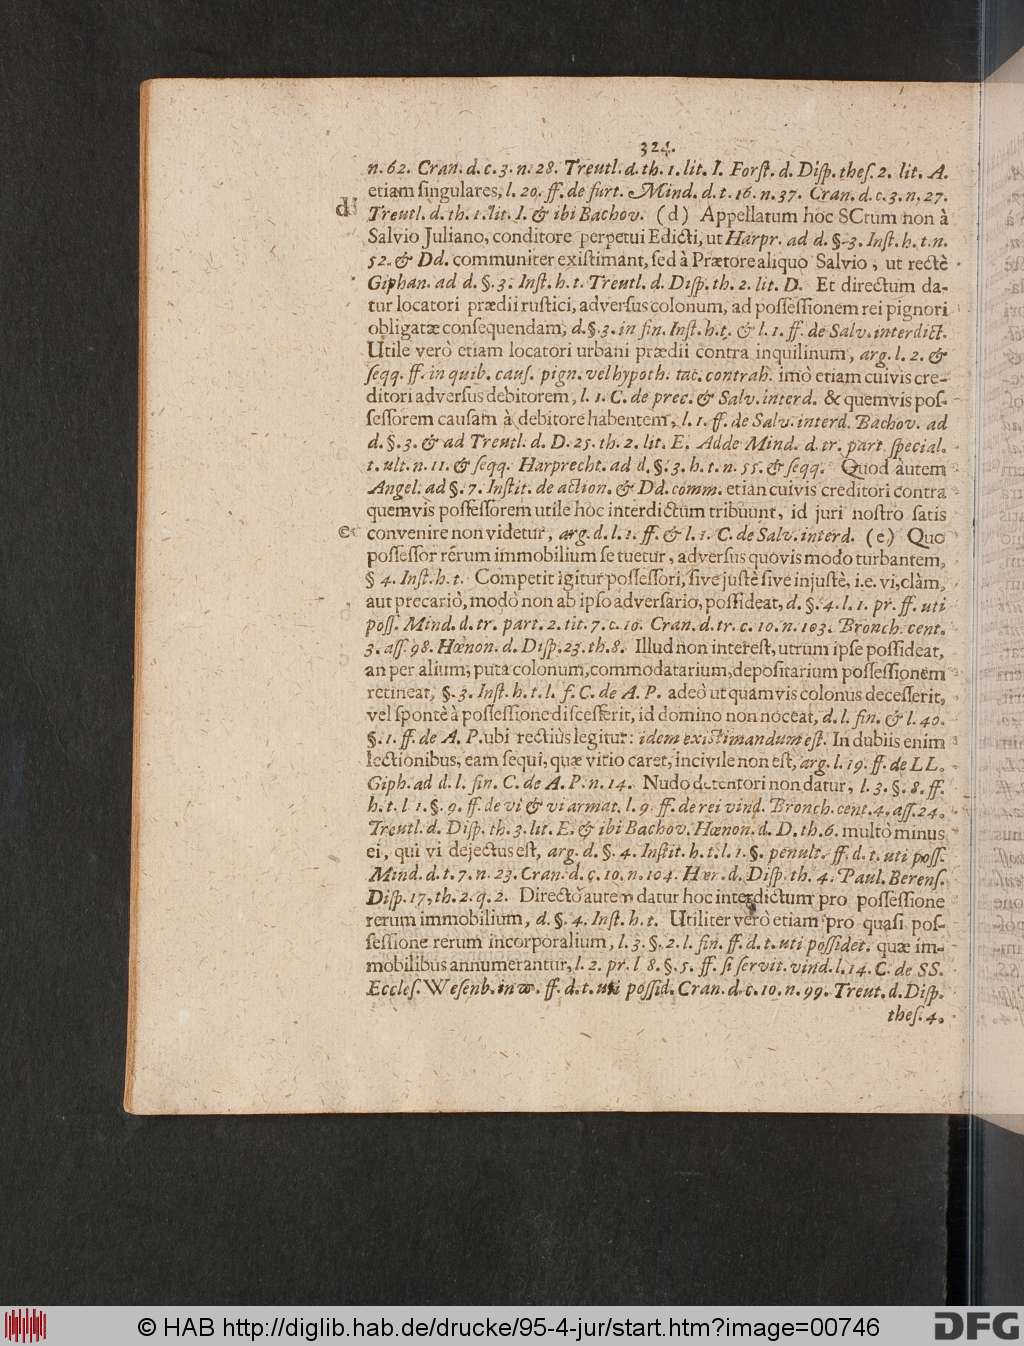 324.
n. 62. Cran. d. c. 3. n. 28. Treutl. d. th. 1. lit. I. Forst. d. Disp. thes. 2. lit. A.
etiam singulares, l. 20. ff. de furt. Mind. d. t. 16. n. 37. Cran. d. c. 3. n. 27.
d Treutl. d. th. 1. lit. I. & ibi Bachov. (d) Appellatum hoc SCtum non à
Salvio Juliano, conditore perpetui Edicti, ut Harpr. ad d. §. 3. Inst. h. t. n.
52. & Dd. communiter existimant, sed à Prætore aliquo Salvio, ut rectè
Giphan. ad d. §. 3. Inst. h. t. Treutl. d. Disp. th. 2. lit. D. Et directum da-
tur locatori prædii rustici, adversus colonum, ad possessionem rei pignori
obligatæ consequendam, d. §. 3. in fin. Inst. h. t. & l. 1. ff. de Salv. interdict.
Utile verò etiam locatori urbani prædii contra inquilinum, arg. l. 2. &
seqq. ff. in quib. caus. pign. vel hypoth. tac. contrah. imò etiam cuivis cre-
ditori adversus debitorem, l. 1. C. de prec. & Salv. interd. & quemvis pos-
sessorem causam à debitore habentem, l. 1. ff. de Salv. interd. Bachov. ad
d. §. 3. & ad Treutl. d. D. 25. th. 2. lit. E. Adde Mind. d. tr. part special.
t. ult. n. 11. & seqq. Harprecht. ad d. §. 3. h. t. n. 55. & seqq. Quod autem
Angel. ad §. 7. Instit. de action. & Dd. comm. etian cuivis creditori contra
quemvis possessorem utile hoc interdictum tribuunt, id juri nostro satis
e convenire non videtur, arg. d. l. 1. ff. & l. 1. C. de Salv. interd. (e) Quo
possessor rerum immobilium se tuetur, adversus quovis modo turbantem,
§ 4. Inst. h. t. Competit igitur possessori, sive justè sive injustè, i. e. vi, clàm,
aut precariò, modò non ab ipso adversario, possideat, d. §. 4. l. 1. pr. ff. uti
poss. Mind. d. tr. part. 2. tit. 7. c. 10. Cran. d. tr. c. 10. n. 103. Bronch. cent.
3. ass. 98. Hœnon. d. Disp. 23. th. 8. Illud non interest, utrum ipse possideat,
an per alium, puta colonum, commodatarium, depositarium possessionem
retineat, §. 3. Inst. h. t. l. f. C. de A. P. adeò ut quamvis colonus decesserit,
vel spontè à possessione discesserit, id domino non noceat, d. l. fin. & l. 40.
§. 1. ff. de A. P. ubi rectiùs legitur: idem existimandum est. In dubiis enim
lectionibus, eam sequi, quæ vitio caret, incivile non est, arg. l. 19. ff. de LL.
Giph. ad d. l. fin. C. de A. P. n. 14. Nudo detentori non datur, l. 3. §. 8. ff.
h. t. l 1. §. 9. ff. de vi & vi armat. l. 9. ff. de rei vind. Bronch. cent. 4. ass. 24.
Treutl. d. Disp. th. 3. lit. E. & ibi Bachov. Hœnon. d. D. th. 6. multò minus
ei, qui vi dejectus est, arg. d. §. 4. Instit. h. t. l. 1. §. penult. ff. d. t. uti poss.
Mind. d. t. 7. n. 23. Cran. d. c. 10. n. 104. Hœr. d. Disp. th. 4. Paul. Berens.
Disp. 17, th. 2. q. 2. Directò autem datur hoc interdictum pro possessione
rerum immobilium, d. §. 4. Inst. h. t. Utiliter verò etiam pro quasi pos-
sessione rerum incorporalium, l. 3. §. 2. l. fin. ff. d. t. uti possidet. quæ im-
mobilibus annumerantur, l. 2. pr. l 8. §. 5. ff. si servit. vind. l. 14. C. de SS.
Eccles. Wesenb. in π. ff. d. t. uti possid. Cran. d. c. 10. n. 99. Treut. d. Disp.
thes. 4.
© HAB http://diglib.hab.de/drucke/95-4-jur/start.htm?image=00746
DFG